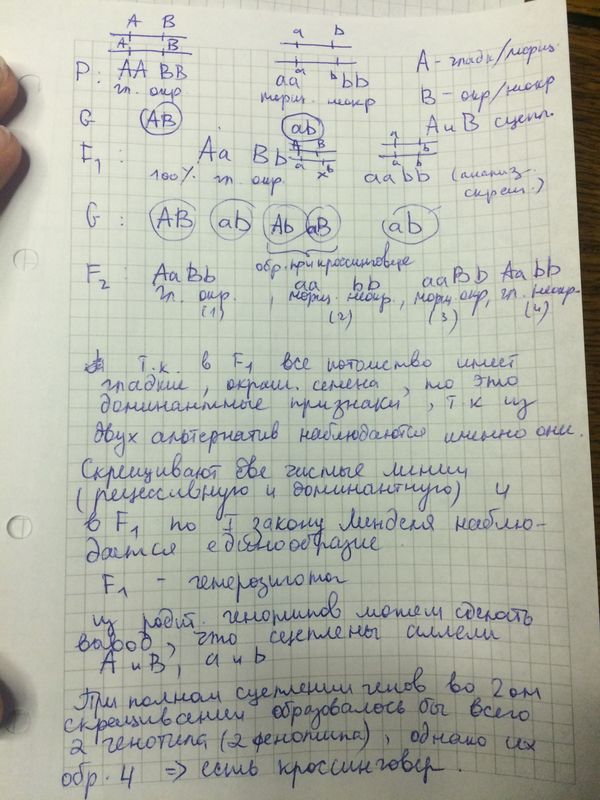 A B a b
A B a b
P: AA BB aa bb A - гладк/морщ.
гл. окр. морщ. неокр B - окр/неокр
G AB ab A и B сцепл.
F1: Aa Bb A B a b a b a b aabb (анализ. скрещ.)
100% гл. окр.
G: AB ab Ab aB ab
обр. при кроссинговере
F2: AaBb, aa bb, aaBb, Aabb
гл. окр. морщ. неокр. морщ. окр, гл. неокр.
(1) (2) (3) (4)
Т.к. в F1 все потомство имеет
гладкие, окраш. семена, то это
доминантные признаки, т.к из
двух альтернатив наблюдаются именно они.
Скрещивают две чистые линии
(рецессивную и доминантную) и
в F1 по I закону Менделя наблю-
дается единообразие.
F1 - гетерозигота
из родит. генотипов можем сделать
вывод, что сцеплены аллели
A и B, a и b
При полном сцеплении генов во 2ом
скрещивании образовалось бы всего
2 генотипа (2 фенотипа), однако их
обр. 4 => есть кроссинговер.